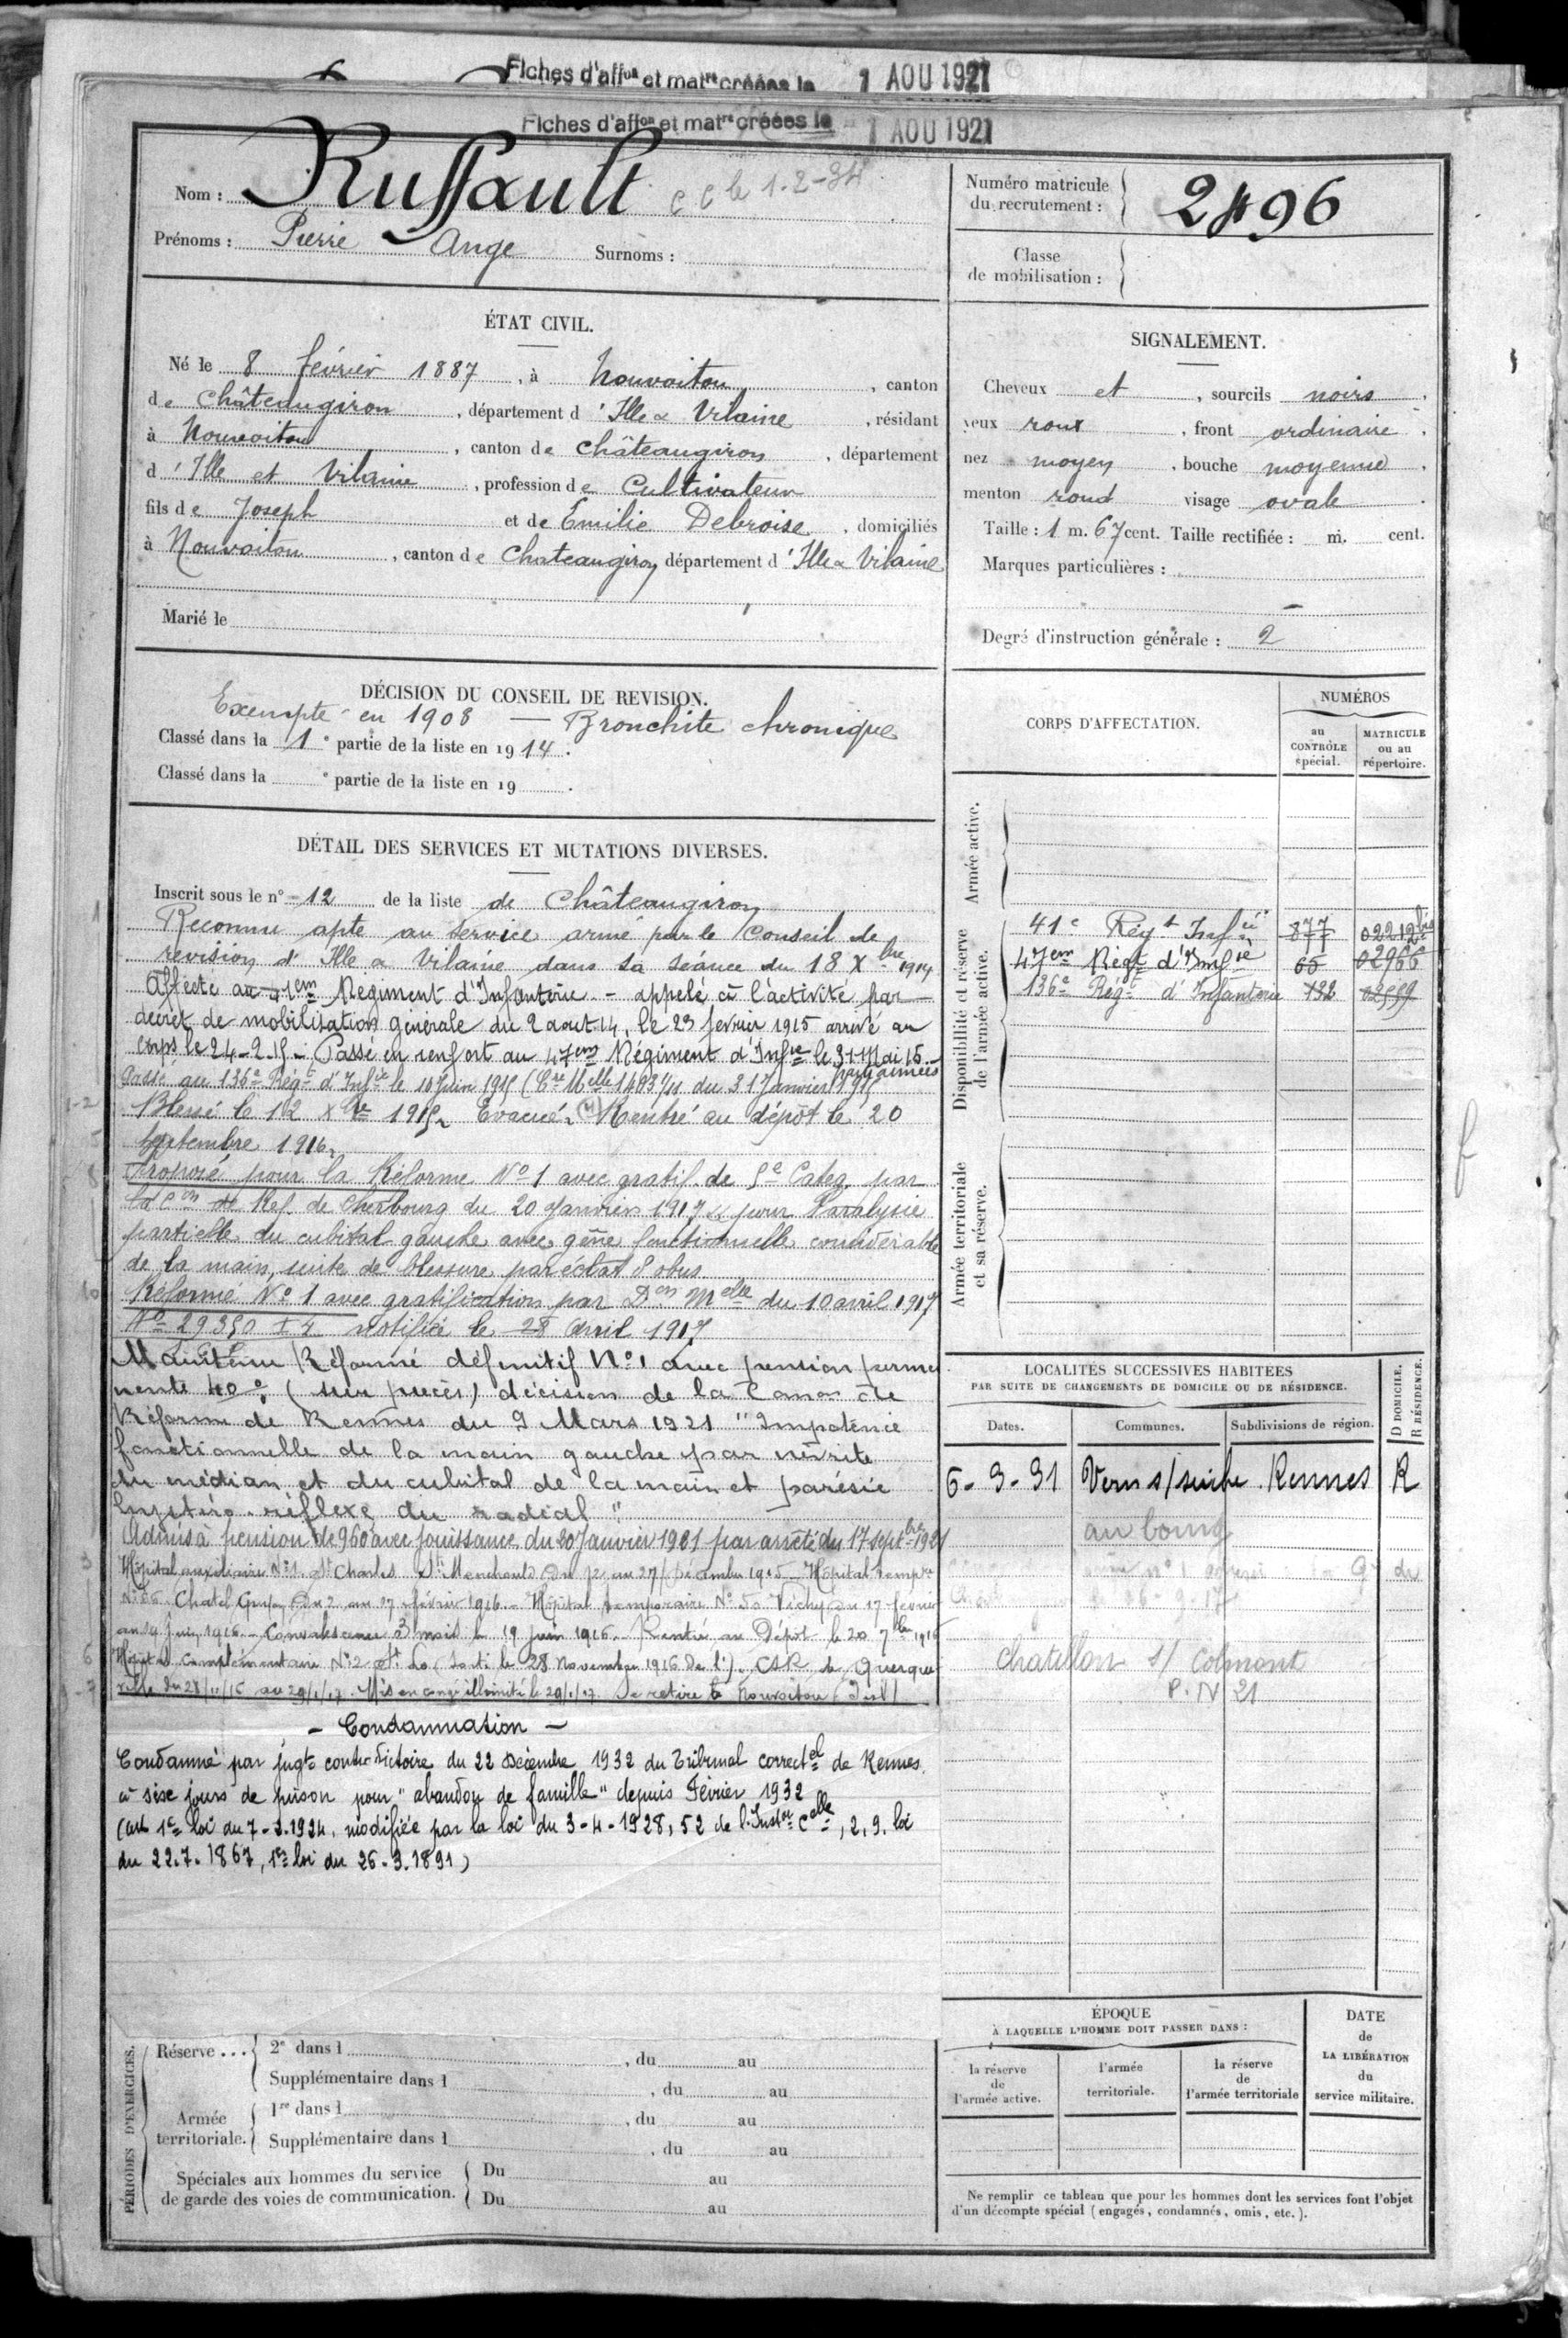 Fiches d'affon et matre créées le 1 AOU 1921
Fiches d'affon et matre créées le 1 AOU 1921
Nom : Russault c c le 1-2-34
Prénoms : Pierre Ange Surnoms :
Numéro matricule du recrutement : 2496
Classe de mobilisation :
ÉTAT CIVIL.
Né le 8 février 1887, à Nouvoitou, canton
de Châteaugiron, département d'Ille & Vilaine, résidant
à Nouvoitou, canton de Châteaugiron, département
d'Ille et Vilaine, profession de Cultivateur
fils de Joseph et de Emilie Debroise, domiciliés
à Nouvoitou, canton de Chateaugiron département d'Ille & Vilaine
Marié le
SIGNALEMENT.
Cheveux et, sourcils noirs,
yeux roux, front ordinaire,
nez moyen, bouche moyenne,
menton rond visage ovale.
Taille : 1 m. 67 cent. Taille rectifiée : m. cent.
Marques particulières :
-
Degré d'instruction générale : 2
DÉCISION DU CONSEIL DE REVISION.
Exempté en 1908 — Bronchite chronique
Classé dans la 1e partie de la liste en 1914.
Classé dans la e partie de la liste en 19 .
DÉTAIL DES SERVICES ET MUTATIONS DIVERSES.
Inscrit sous le n° 12 de la liste de Châteaugiron
Reconnu apte au service armé par le Conseil de
revision d'Ille & Vilaine dans sa séance du 18 Xbre 1914
Affecté au 41em Régiment d'Infanterie - appelé à l'activité par
décret de mobilisation générale du 2 aout 14, le 23 février 1915 arrivé au
corps le 24-2-15 - Passé en renfort au 47em Régiment d'Infie le 31 Mai 15 -
parti aux armées
Passé au 136e Régt d'Infie le 10 juin 1915 (Cre Melle 1403 1/11 du 31 Janvier 1915
Blessé le 12 Xbre 1915 Evacué. Rentré au dépôt le 20
septembre 1916.
Proposé pour la Réforme N°1 avec gratif. de 5e Catég. par
la Con de Réf. de Cherbourg du 20 Janvier 1917 pour Paralysie
partielle du cubital gauche avec gêne fonctionnelle considérable
de la main, suite de blessure par éclat d'obus
Réformé N°1 avec gratification par Don Melle du 10 avril 1917
N° 29350 notifiée le 28 Avril 1917
Maintenu Réformé définitif N°1 avec pension perma
nente 40% (sur pièces) décision de la Comon de
Réforme de Rennes du 9 Mars 1921 "Impotence
fonctionnelle de la main gauche par névrite
du médian et du cubital de la main et parésie
hystéro-réflexe du radial"
Admis à pension de 960 avec jouissance du 30 Janvier 1921 par arrêté du 17 septbre 1921
Hôpital auxiliaire N°1 St Charles Ste Menehould du 12 au 27 Décembre 1915 - Hôpital tempre
N°66 Chatel Guyon du 2 au 17 février 1916 - Hôpital temporaire N°50 Vichy du 17 février
au 19 Juin 1916 - Convalescence 3 mois le 19 juin 1916. Rentré au Dépôt le 20 7bre 1916
Hôpital Complémentaire N°2 St Lo (Sorti le 28 Novembre 1916 de l') CSR de Querque
ville du 28/11/16 au 29/1/17. Mis en congé illimité le 29/1/17. Se retire à Nouvoitou
- Condamnation -
Condamné par jugt contradictoire du 22 Décembre 1932 du Tribunal correctel de Rennes
à six jours de prison pour "abandon de famille" depuis Février 1932
(art 1er loi du 7-2-1924, modifiée par la loi du 3-4-1928, 52 de l'Inston Celle, 2, 9, loi
du 22.7.1867, 1er loi du 26-3-1891)
CORPS D'AFFECTATION.
NUMÉROS
au CONTRÔLE spécial.
MATRICULE ou au répertoire.
Armée active.
Disponibilité et réserve de l'armée active.
41e Régt Infie 877 02212 bis
47em Régt d'Infie 65 02966
136e Régt d'Infanterie 132 02559
Armée territoriale et sa réserve.
LOCALITÉS SUCCESSIVES HABITÉES
PAR SUITE DE CHANGEMENTS DE DOMICILE OU DE RÉSIDENCE.
Dates. Communes. Subdivisions de région. D DOMICILE. R RÉSIDENCE.
6-3-31 Vern s/ seiche Rennes R
au bourg
Chatillon s/ Colmont
P. IV 21
ÉPOQUE
À LAQUELLE L'HOMME DOIT PASSER DANS :
la réserve de l'armée active.
l'armée territoriale.
la réserve de l'armée territoriale
DATE de LA LIBÉRATION du service militaire.
Ne remplir ce tableau que pour les hommes dont les services font l'objet
d'un décompte spécial (engagés, condamnés, omis, etc.).
PÉRIODES D'EXERCICES.
Réserve... 2e dans l , du au
Supplémentaire dans l , du au
Armée territoriale. 1re dans l , du au
Supplémentaire dans l , du au
Spéciales aux hommes du service
de garde des voies de communication.
Du au
Du au